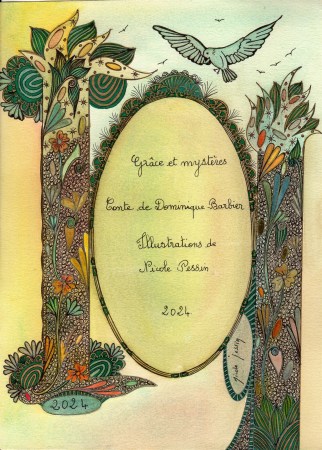 Grâce et mystères
Conte de Dominique Barbier
Illustrations de
Nicole Pessin
2024
2024
nicole pessin